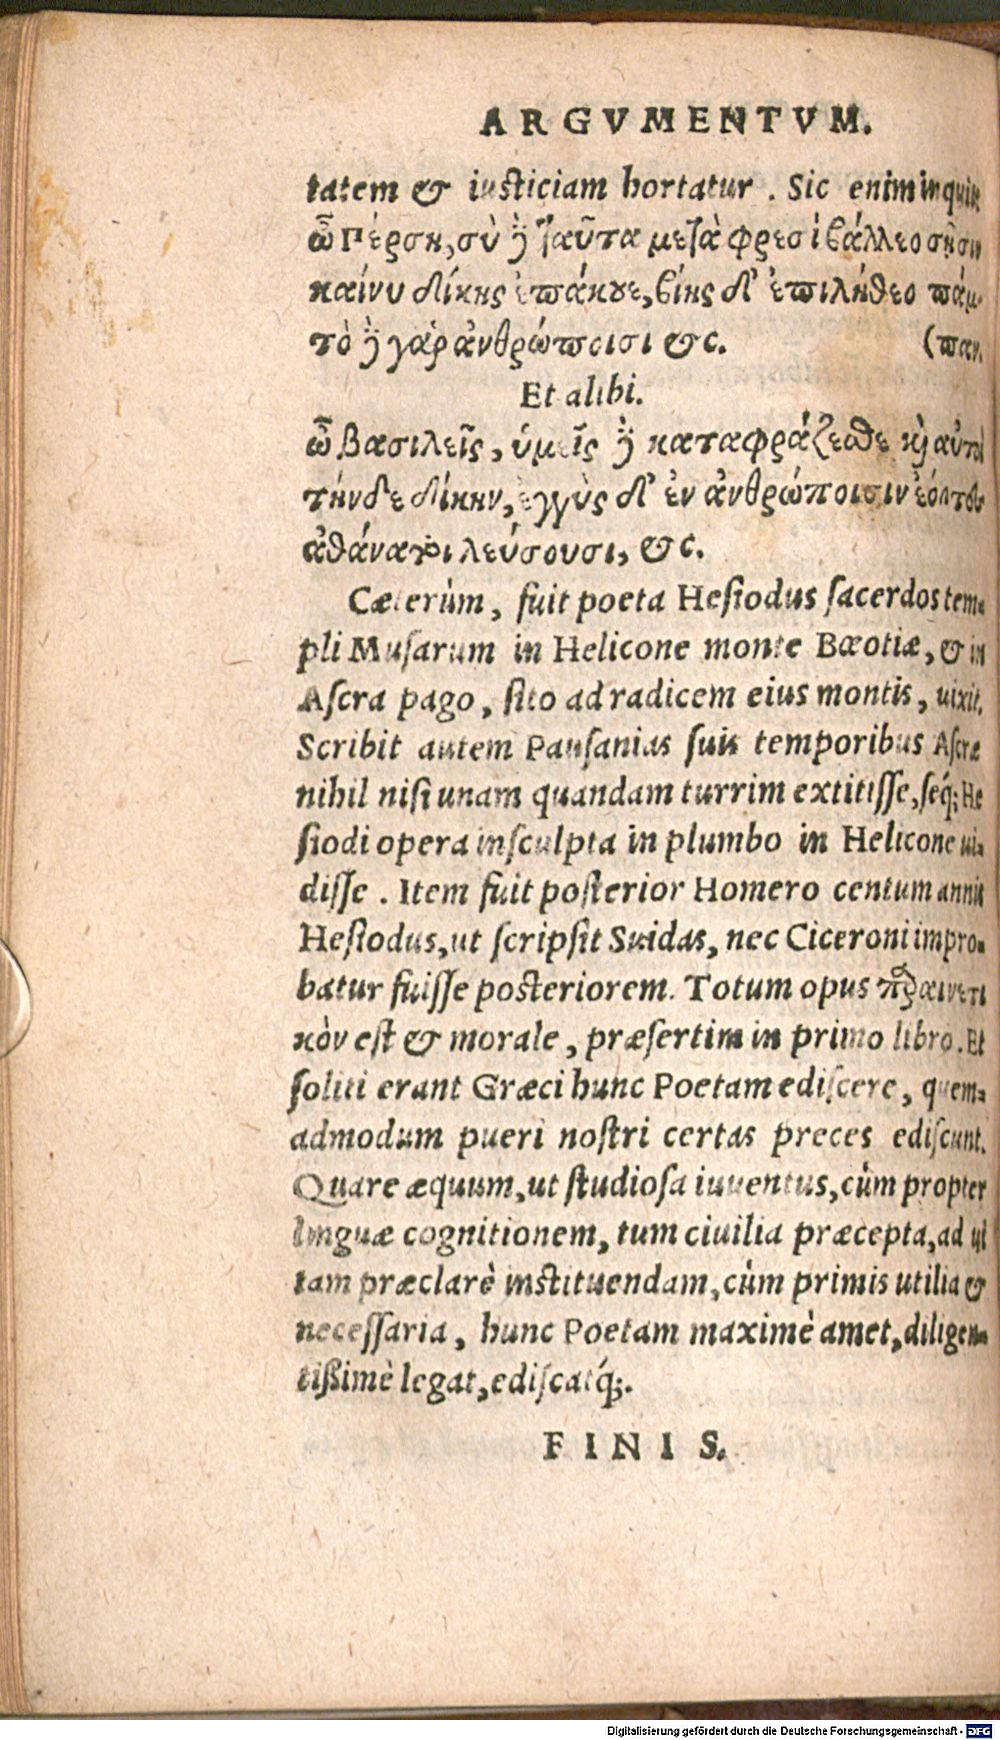 ARGVMENTVM.
tatem & iusticiam hortatur. Sic enim inquit
ὦ Πέρση, σὺ δὲ ταῦτα μετὰ φρεσὶ βάλλεο σῇσι
καί νυ δίκης ἐπάκουε, βίης δ' ἐπιλήθεο πάμ-
τὸ δὲ γὰρ ἀνθρώποισι &c. (παν.
Et alibi.
ὦ βασιλεῖς, ὑμεῖς δὲ καταφράζεσθε καὶ αὐτοὶ
τήνδε δίκην, ἐγγὺς δ' ἐν ἀνθρώποισιν ἐόντες
ἀθάνατοι λεύσουσι, &c.
Cæterùm, fuit poeta Hesiodus sacerdos tem-
pli Musarum in Helicone monte Bœotiæ, & in
Ascra pago, sito ad radicem eius montis, uixit.
Scribit autem Pausanias suis temporibus Ascræ
nihil nisi unam quandam turrim extitisse, seq́; He
siodi opera insculpta in plumbo in Helicone ui-
disse. Item fuit posterior Homero centum annis
Hesiodus, ut scripsit Suidas, nec Ciceroni impro-
batur fuisse posteriorem. Totum opus παραινετι
κὸν est & morale, præsertim in primo libro. Et
soliti erant Græci hunc Poetam ediscere, quem-
admodum pueri nostri certas preces ediscunt.
Quare æquum, ut studiosa iuuentus, cùm propter
linguæ cognitionem, tum ciuilia præcepta, ad ui
tam præclarè instituendam, cùm primis utilia &
necessaria, hunc Poetam maximè amet, diligen-
tißimè legat, ediscatq́;.
FINIS.
Digitalisierung gefördert durch die Deutsche Forschungsgemeinschaft - DFG